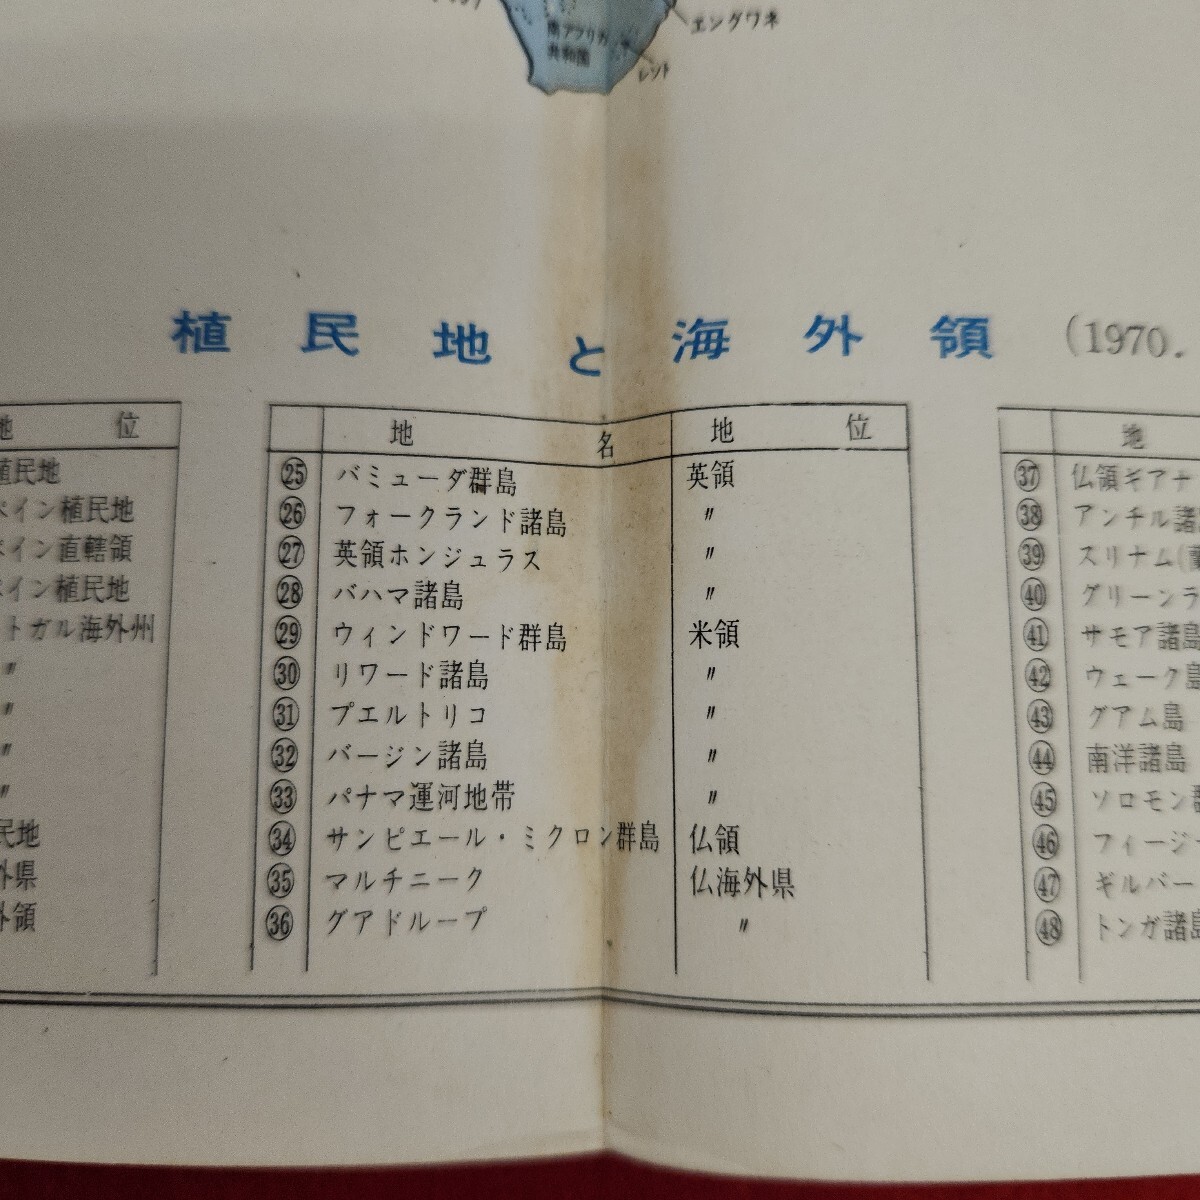 エングワネ
南アフリカ
共和国
レソト
植民地と海外領 (1970.
地 位
植民地
ペイン植民地
ペイン直轄領
ペイン植民地
トガル海外州
〃
〃
〃
〃
民地
外県
外領
地 名 地 位
㉕ バミューダ群島 英領
㉖ フォークランド諸島 〃
㉗ 英領ホンジュラス 〃
㉘ バハマ諸島 〃
㉙ ウィンドワード群島 米領
㉚ リワード諸島 〃
㉛ プエルトリコ 〃
㉜ バージン諸島 〃
㉝ パナマ運河地帯 〃
㉞ サンピエール・ミクロン群島 仏領
㉟ マルチニーク 仏海外県
㊱ グアドループ 〃
地
㊲ 仏領ギアナ
㊳ アンチル諸
㊴ スリナム(蘭
㊵ グリーンラ
㊶ サモア諸島
㊷ ウェーク島
㊸ グアム島
㊹ 南洋諸島
㊺ ソロモン群
㊻ フィージー
㊼ ギルバー
㊽ トンガ諸島